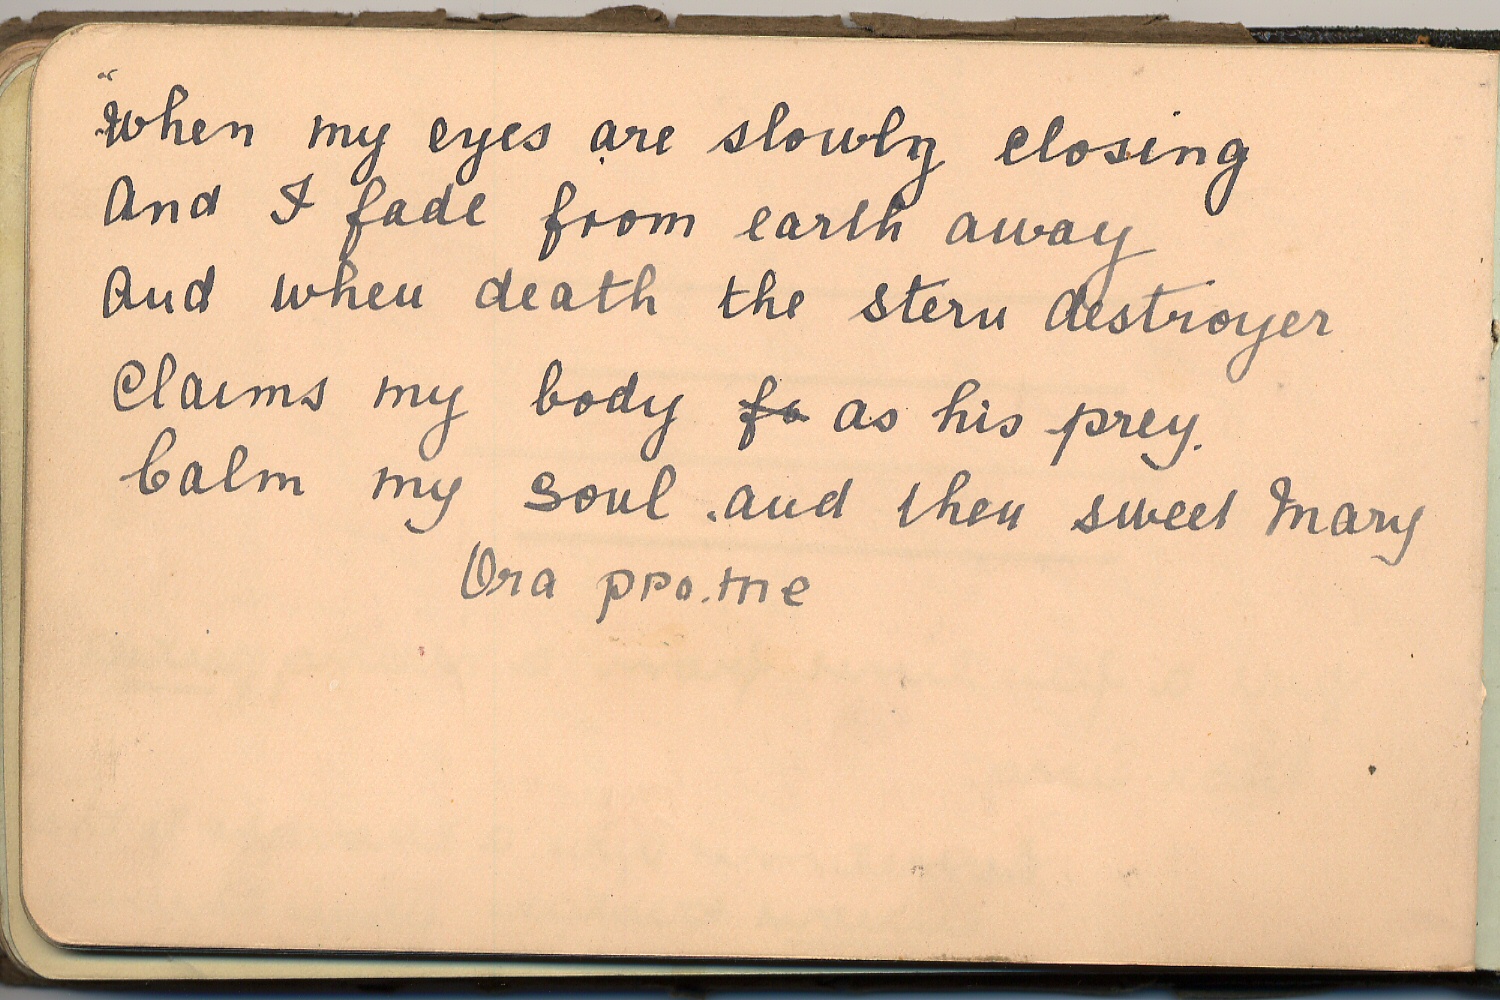 "When my eyes are slowly closing
And I fade from earth away
And when death the stern destroyer
Claims my body fo as his prey.
Calm my soul. and then sweet Mary
Ora pro.me